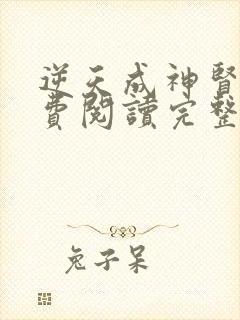 逆天成神醫
費閱讀完整
兔子呆